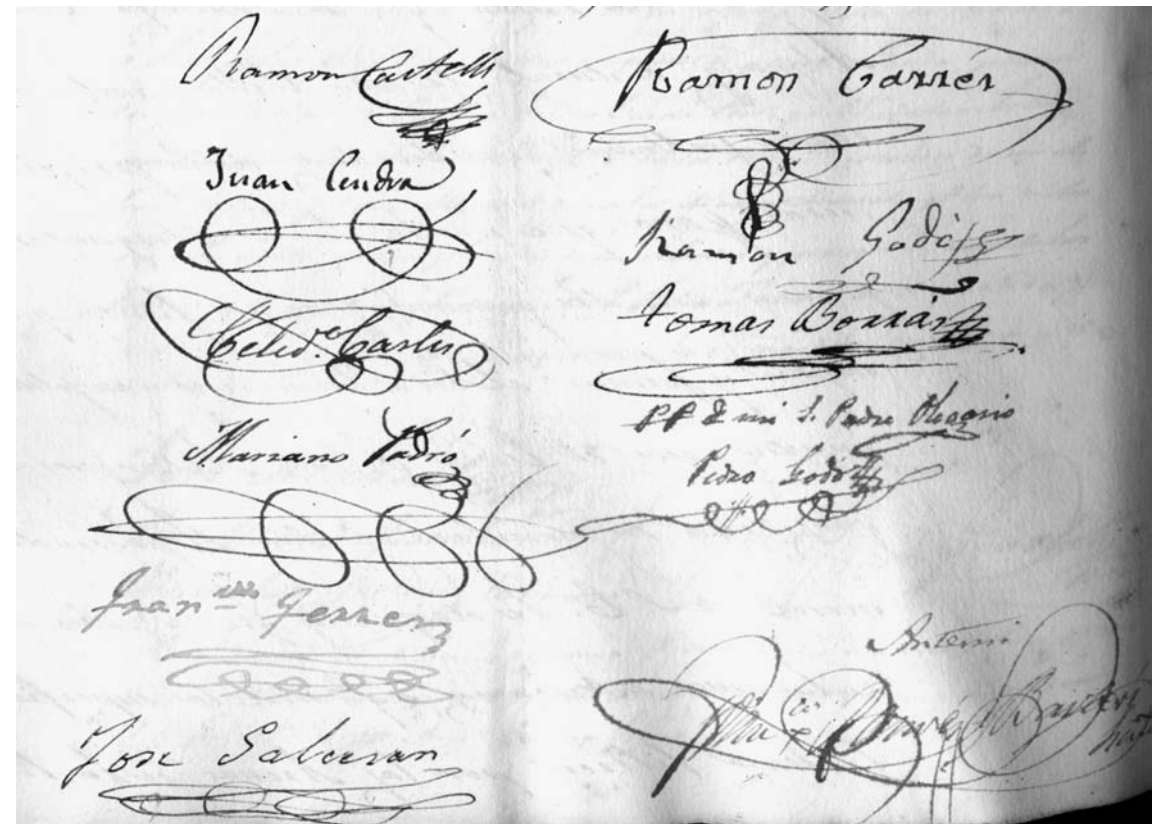 Ramon Castells
Juan Cendra
Celed.e Carles
Mariano Padró
Fran.co Ferrer
Jose Galceran
Ramon Carrer
Ramon Godó
tomas Borrás
pp de mi S. Padre Olegario
Pedro Godó
Antemi